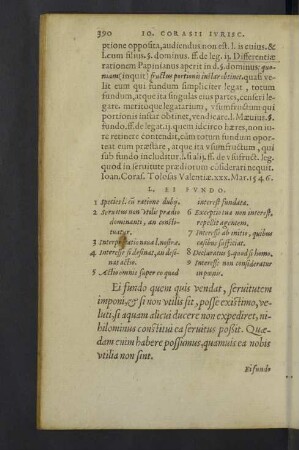 390 IO. CORASII IVRISC.
ptione opposita, audiendus non est. l. is cuius. &
l. cum filius. §. dominus. ff. de leg. ij. Differentiæ
rationem Papinianus aperit in d. §. dominus: quo-
niam (inquit) fructus portionis instar obtinet. quasi ve-
lit eum qui fundum simpliciter legat, totum
fundum, atque ita singulas eius partes, censeri le-
gare. meritoque legatarium, vsumfructum qui
portionis instar obtinet, vendicare. l. Mæuius. §.
fundo. ff. de leg. ij. quem idcirco hæres, non iure
retinere contendit, cum totum fundum opor-
teat eum præstare, atque ita vsumfructum, qui
sub fundo includitur. l. si alij. ff. de vsufruct. leg.
quod in seruitute prædiorum considerari nequit.
Ioan. Coras. Tolosas Valentiæ. xxx. Mar. 1546.
L. EI FVNDO.
1 Species l. cū ratione dubij.
2 Seruitus non vtilis prædio
dominanti, an consti-
tuatur.
3 Interpretatio noua l. nostræ.
4 Interesse si desinat, an desi-
nat actio.
5 Actio omnis super eo quod
interest fundata.
6 Exceptio tua non interest,
repellit agentem.
7 Interesse ab initio, quibus
casibus sufficiat.
8 Declaratur §. quod si homo.
9 Interesse non consideratur
in pœnis.
Ei fundo quem quis vendat, seruitutem
imponi, & si non vtilis sit, posse existimo, ve-
luti, si aquam alicui ducere non expediret, ni-
hilominus constitui ea seruitus possit. Quæ-
dam enim habere possumus, quamuis ea nobis
vtilia non sint.
Ei fundo